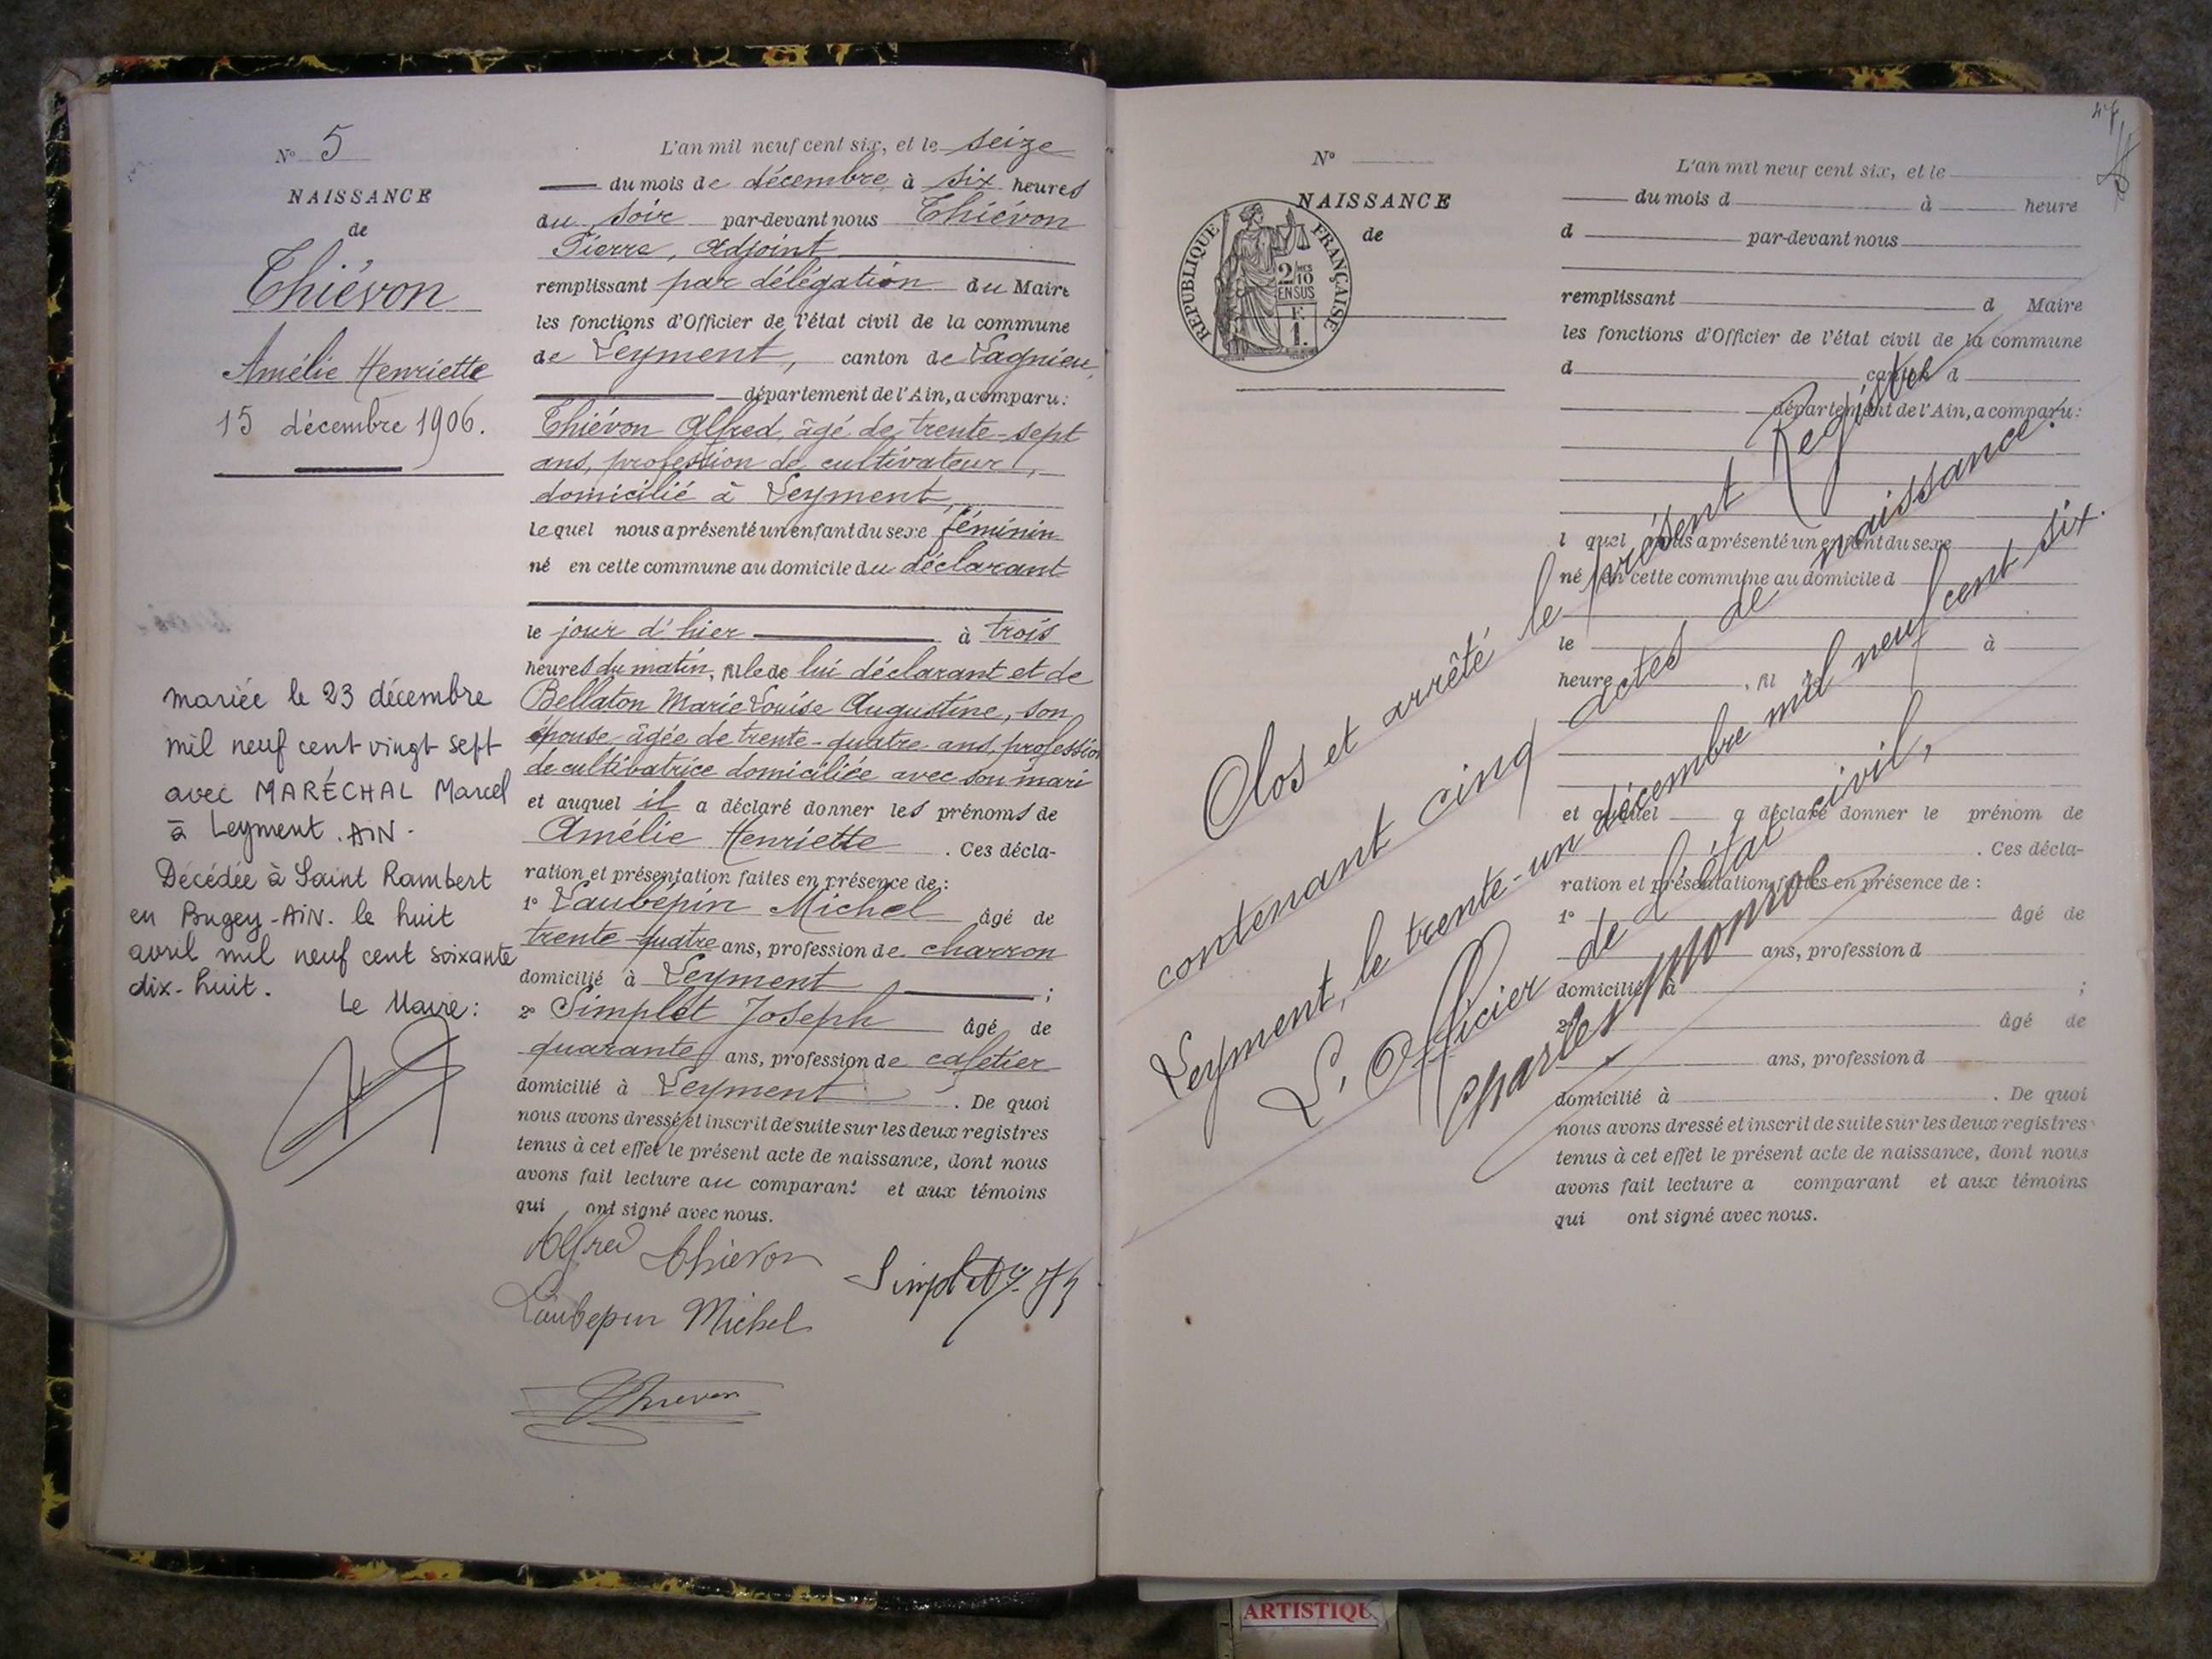 N° 5
NAISSANCE
de
Thiévon
Amélie Henriette
15 décembre 1906.
mariée le 23 décembre
mil neuf cent vingt sept
avec MARÉCHAL Marcel
à Leyment. AIN.
Décédée à Saint Rambert
en Bugey-AIN. le huit
avril mil neuf cent soixante
dix-huit.
Le Maire:
L'an mil neuf cent six, et le seize
du mois de décembre, à six heures
du soir par-devant nous Thiévon
Pierre, Adjoint
remplissant par délégation du Maire
les fonctions d'Officier de l'état civil de la commune
de Leyment, canton de Lagnieu,
département de l'Ain, a comparu:
Thiévon Alfred, âgé de trente-sept
ans, profession de cultivateur,
domicilié à Leyment,
lequel nous a présenté un enfant du sexe féminin
né en cette commune au domicile du déclarant
le jour d'hier à trois
heures du matin, fille de lui déclarant et de
Bellaton Marie Louise Augustine, son
épouse âgée de trente-quatre ans, profession
de cultivatrice domiciliée avec son mari
et auquel il a déclaré donner les prénoms de
Amélie Henriette. Ces décla-
ration et présentation faites en présence de:
1° Laubépin Michel âgé de
trente-quatre ans, profession de charron
domicilié à Leyment ;
2° Simplet Joseph âgé de
quarante ans, profession de cafetier
domicilié à Leyment. De quoi
nous avons dressé et inscrit de suite sur les deux registres
tenus à cet effet le présent acte de naissance, dont nous
avons fait lecture au comparant et aux témoins
qui ont signé avec nous.
Alfred Thievon
Simplet
Laubepin Michel
Thievon
47
N°
NAISSANCE
de
REPUBLIQUE FRANÇAISE
2/10
EN SUS
F.
1.
L'an mil neuf cent six, et le
du mois d à heure
d par-devant nous
remplissant d Maire
les fonctions d'Officier de l'état civil de la commune
d canton d
département de l'Ain, a comparu:
l quel nous a présenté un enfant du sexe
né en cette commune au domicile d
le à
heure , fil de
et auquel a déclaré donner le prénom de
. Ces décla-
ration et présentation faites en présence de:
1° âgé de
ans, profession d
domicilié à ;
2° âgé de
ans, profession d
domicilié à . De quoi
nous avons dressé et inscrit de suite sur les deux registres
tenus à cet effet le présent acte de naissance, dont nous
avons fait lecture a comparant et aux témoins
qui ont signé avec nous.
Clos et arrêté le présent Registre
contenant cinq actes de naissance.
Leyment, le trente-un décembre mil neuf cent six.
L'Officier de l'état civil,
Charles
ARTISTIQU